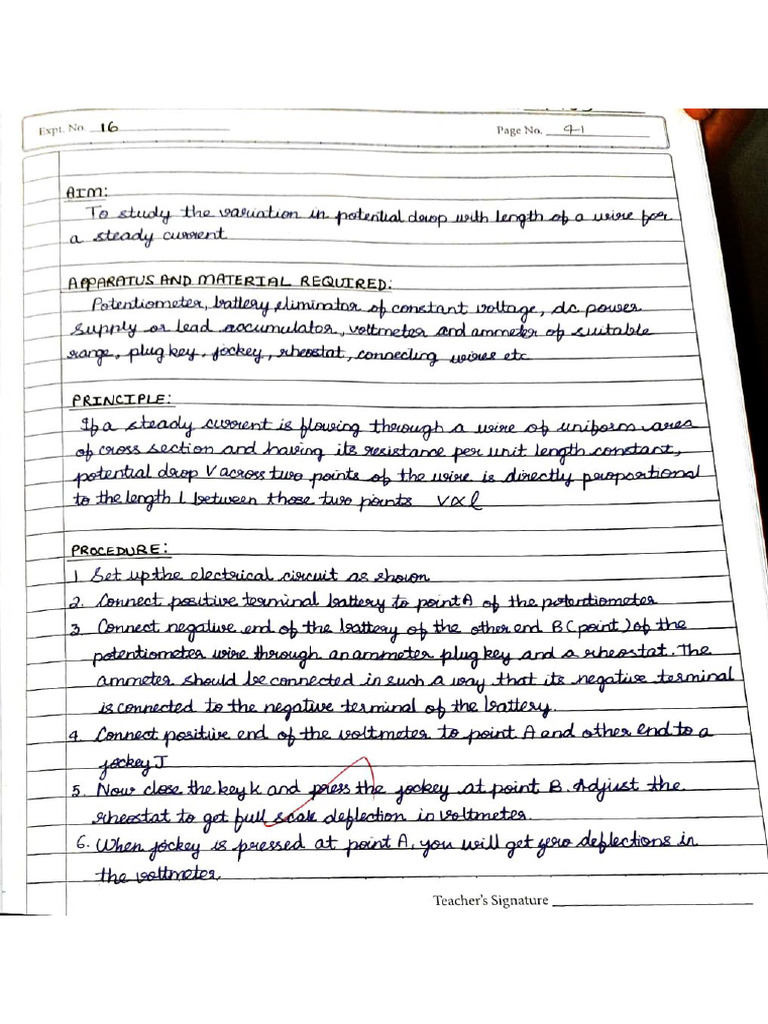 Expt. No. 16
Page No. 41
AIM:
To study the variation in potential drop with length of a wire for
a steady current
APPARATUS AND MATERIAL REQUIRED:
Potentiometer, battery eliminator of constant voltage, dc power
supply or lead accumulator, voltmeter and ammeter of suitable
range, plug key, jockey, rheostat, connecting wires etc
PRINCIPLE:
If a steady current is flowing through a wire of uniform area
of cross section and having its resistance per unit length constant,
potential drop V across two points of the wire is directly proportional
to the length l between those two points V∝l
PROCEDURE:
1. Set up the electrical circuit as shown
2. Connect positive terminal battery to point A of the potentiometer
3. Connect negative end of the battery of the other end B (point) of the
potentiometer wire through an ammeter plug key and a rheostat. The
ammeter should be connected in such a way that its negative terminal
is connected to the negative terminal of the battery.
4. Connect positive end of the voltmeter to point A and other end to a
jockey J
5. Now close the key K and press the jockey at point B. Adjust the
rheostat to get full scale deflection in voltmeter.
6. When jockey is pressed at point A, you will get zero deflections in
the voltmeter.
Teacher's Signature